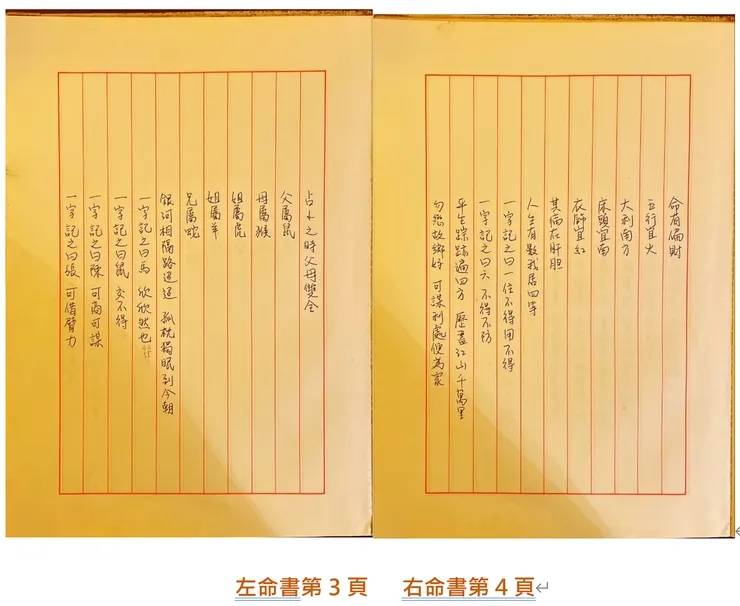 占卜之時父母雙全
父屬鼠
母屬猴
姐屬虎
姐屬羊
兄屬蛇
銀河相隔路迢迢 孤枕獨眠到今朝
一字記之曰馬 欣欣然也
一字記之曰鼠 交不得
一字記之曰陳 可商可謀
一字記之曰張 可借臂力
命有偏財
五行宜火
大利南方
床頭宜南
衣飾宜紅
其病在肝胆
人生有數我居四等
一字記之曰一 住不得用不得
一字記之曰六 不得不防
平生踪跡遍四方 歷盡江山千萬里
勿戀故鄉好 可謀利處便為家
左命書第 3 頁 右命書第 4 頁